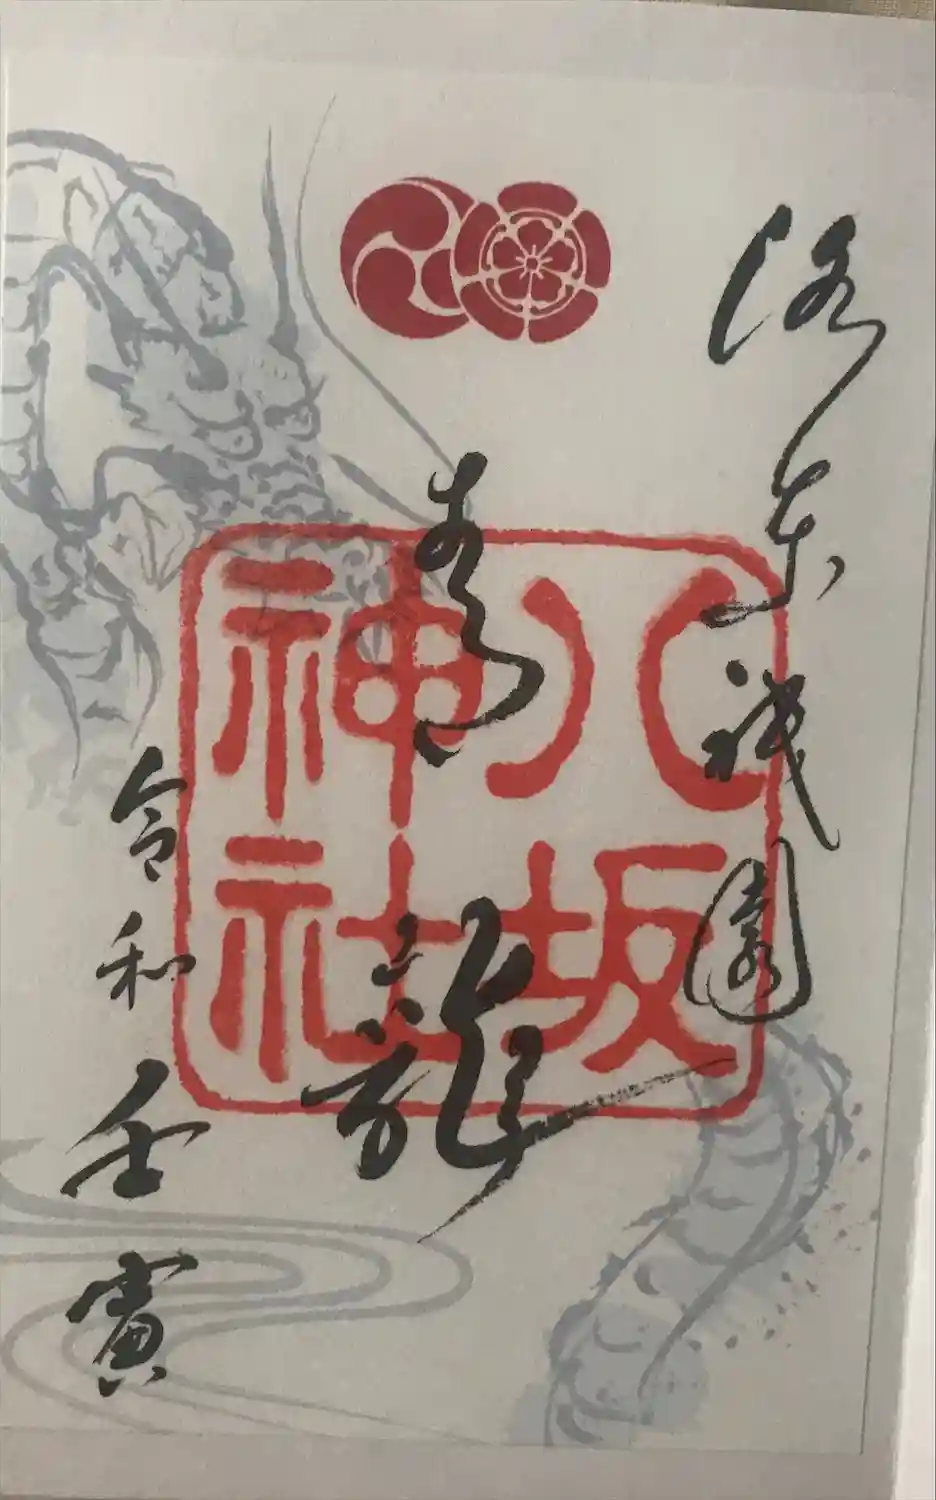 洛东祇園
青龍
八坂
神社
令和壬寅